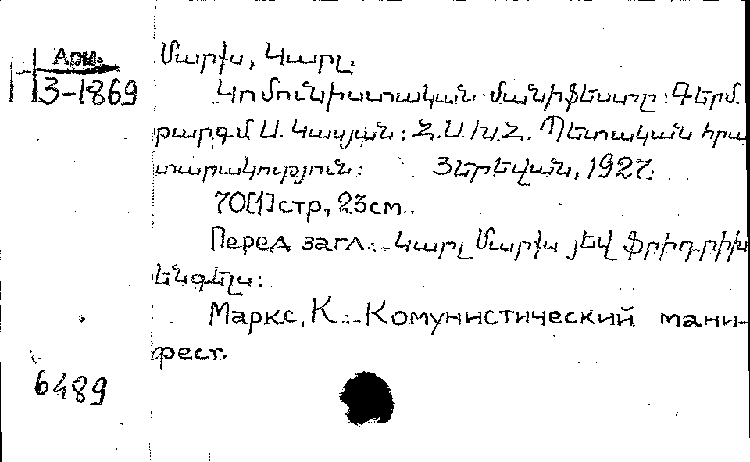 Арм.
3-1869
Մարկս, Կարլ.
Կոմունիստական մանիֆեստը: Գերմ.
թարգմ Ա. Կասյան: Հ.Ս.Խ.Հ. Պետական հրա
տարակություն: Յերեվան, 1927.
70[1]стр, 23см.
Перед загл.: Կարլ Մարկս յեվ Ֆրիդրիխ
Ենգելս:
Маркс, К. Комунистический мани-
фест.
6489